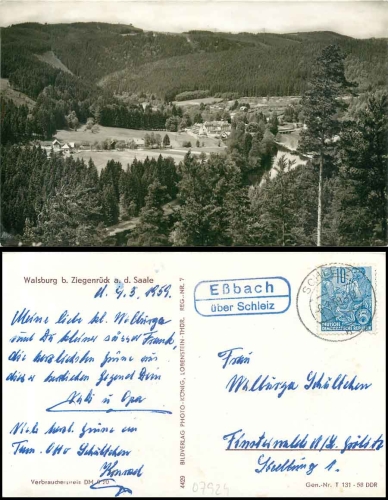 Walsburg b. Ziegenrück a. d. Saale
d. 9.3.1959.
Meine liebe Walburga
und Du kleiner süsser Frank,
die herzlichsten Grüsse aus
dieser herrlichen Gegend Dein
Vati u Opa
Viele herzl. Grüsse von
Fam. Otto Schüttchen
Konrad
Verbraucherpreis DM 0,20
4429 BILDVERLAG PHOTO-KÖNIG, LOBENSTEIN-THÜR. REG.-NR. 7
Eßbach
über Schleiz
SCHLEIZ
10
DEUTSCHE DEMOKRATISCHE REPUBLIK
Frau
Walburga Schüttchen
Finsterwalde N/L.
Gen.-Nr. T 131 - 58 DDR
07924